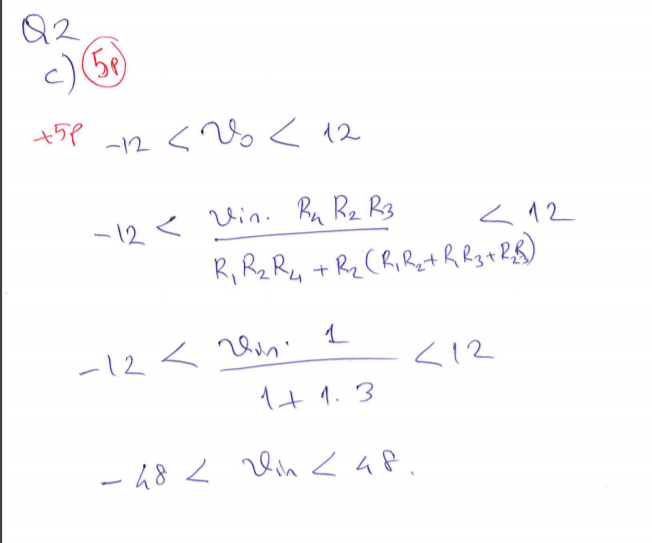 Q2
c) 5p
+5p -12 < Vo < 12
-12 < Vin. R4 R2 R3 < 12
R1R2R4 + R2(R1R2+R1R3+R2R3)
-12 < Vin. 1 < 12
1+1.3
-48 < Vin < 48.